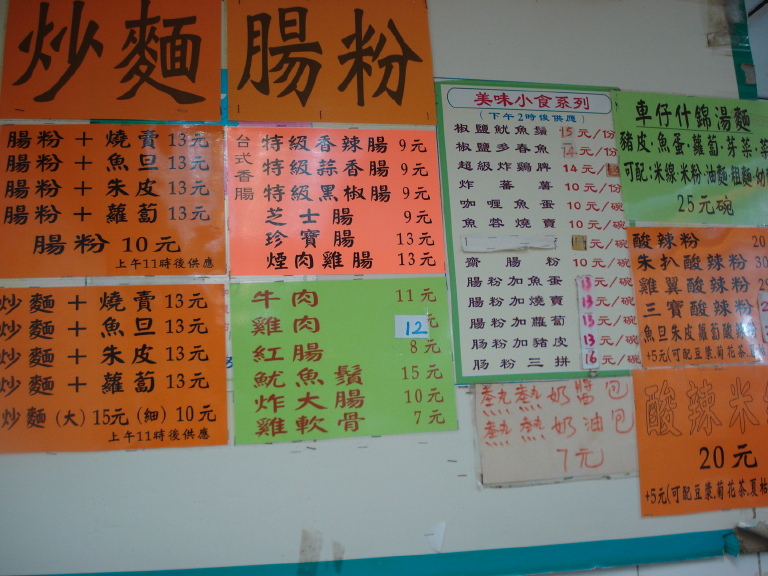 炒麵
腸粉
腸粉＋燒賣 13元
腸粉＋魚旦 13元
腸粉＋朱皮 13元
腸粉＋蘿蔔 13元
腸粉 10元
上午11時後供應
炒麵＋燒賣 13元
炒麵＋魚旦 13元
炒麵＋朱皮 13元
炒麵＋蘿蔔 13元
炒麵(大) 15元 (細) 10元
上午11時後供應
台式香腸
特級香辣腸 9元
特級蒜香腸 9元
特級黑椒腸 9元
芝士腸 9元
珍寶腸 13元
煙肉雞腸 13元
牛肉 11元
雞肉 12元
紅腸 8元
魷魚鬚 15元
炸大腸 10元
雞軟骨 7元
美味小食系列
(下午2時後供應)
椒鹽魷魚鬚 15元/份
椒鹽多春魚 14元/份
超級炸雞髀 14元/
炸蕃薯 10元/份
咖喱魚蛋 10元/碗
魚蓉燒賣 10元/碗
元/碗
齋腸粉 10元/碗
腸粉加魚蛋 13元/碗
腸粉加燒賣 13元/碗
腸粉加蘿蔔 13元/碗
腸粉加豬皮 13元/碗
腸粉三拼 16元/碗
奶醬包
奶油包
7元
車仔什錦湯麵
豬皮·魚蛋·蘿蔔·芽菜·
可配:米線·米粉·油麵·粗麵·幼
25元碗
酸辣粉 20
朱扒酸辣粉 30
雞翼酸辣粉 29
三寶酸辣粉 2
魚旦朱皮蘿蔔酸辣
+5元(可配豆漿,菊花茶
酸辣米
20元
+5元(可配豆漿,菊花茶,夏枯